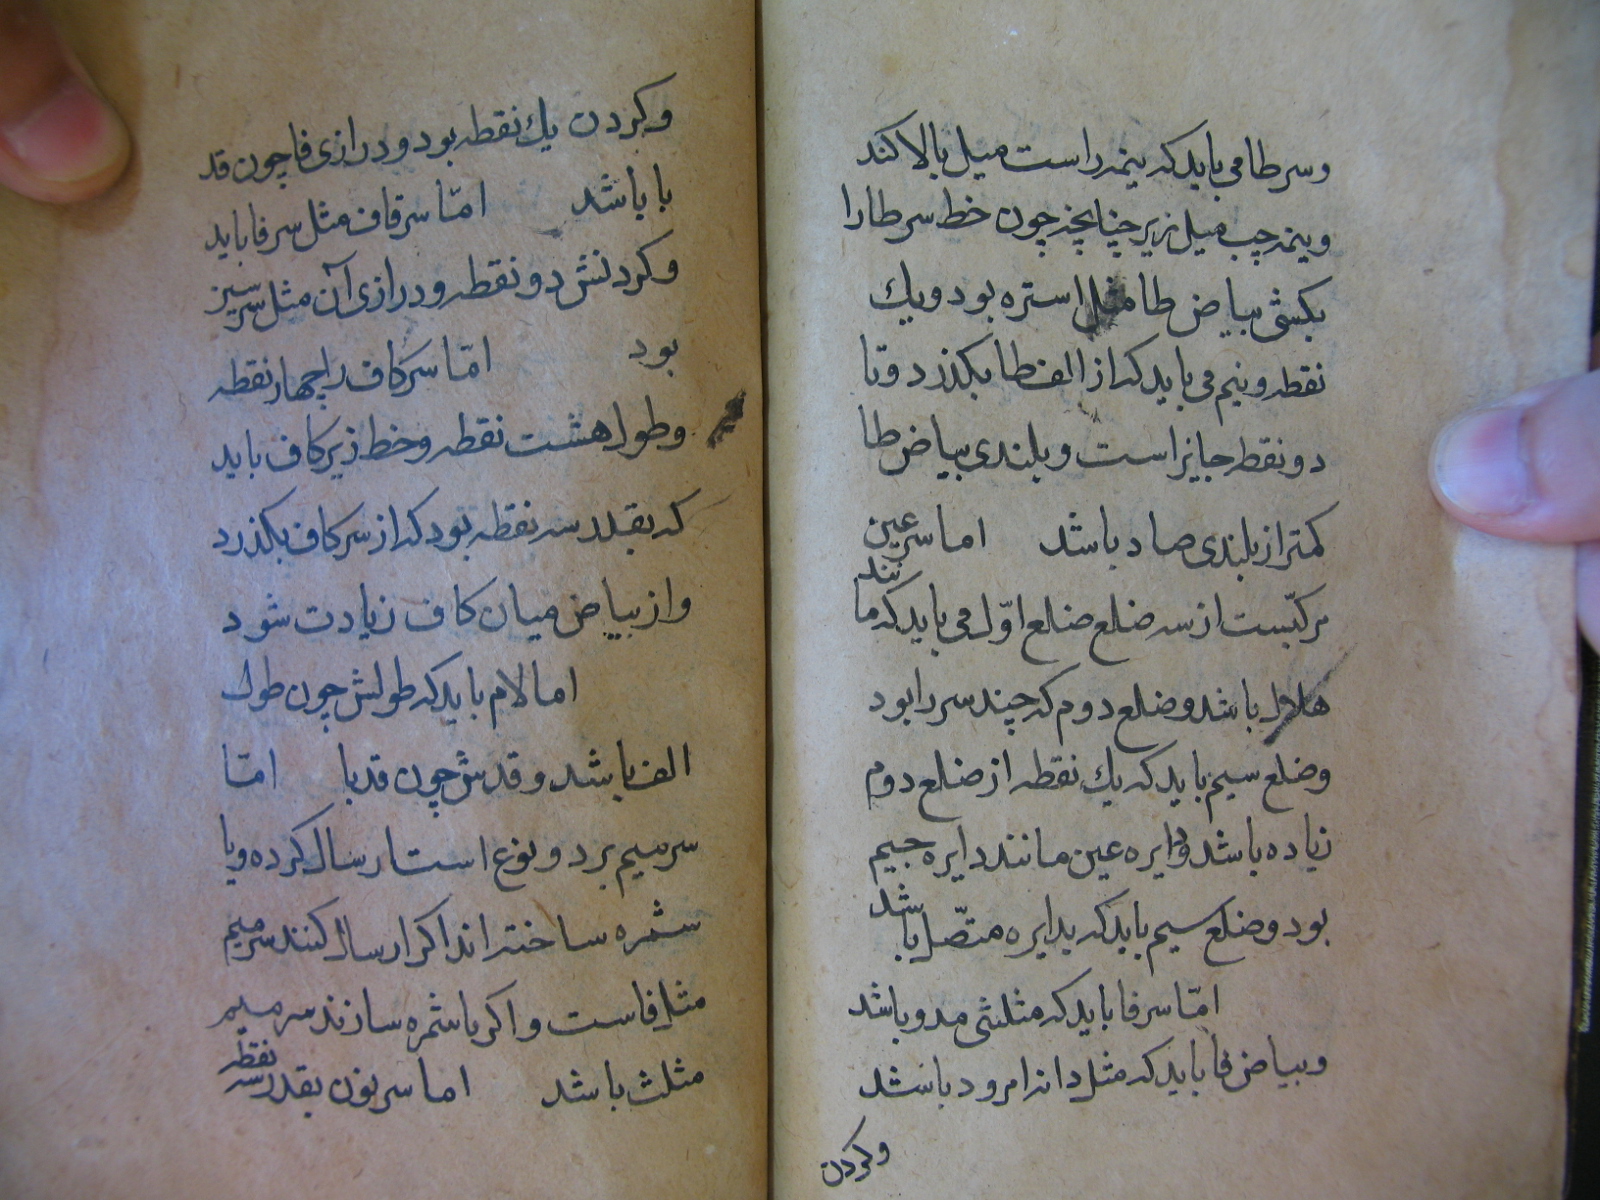 وسر طا می باید که نیمه راست میل ببالا کند
و نیمه چپ میل بزیر چنانچه چون خط سر طا را
بکشی بیاض طا مثل استره بود و یك
نقطه و نیم می باید که از الف طا بکذرد و تا
دو نقطه جایز است و بلندی بیاض طا
کمتر از بلندی صاد باشد اما سر عین
مرکبّست از سه ضلع ضلع اوّل می باید که مانند
هلال باشد و ضلع دوم که چند سر را بود
و ضلع سیم باید که یك نقطه از ضلع دوم
زیاده باشد و دایره عین مانند دایره جیم
بود و ضلع سیم باید که بدایره متّصل باشد
امّا سر فا باید که مثلثی مدو باشد
و بیاض فا باید که مثل دانه امرود باشد
و کردن
و کردن یك نقطه بود و درازی فا چون قد
با باشد امّا سر قاف مثل سر فا باید
و کردنش دو نقطه و درازی آن مثل سر سین
بود امّا سر کاف را چهار نقطه
و طول هشت نقطه و خط زیر کاف باید
که بقدر سه نقطه بود که از سر کاف بکذرد
و از بیاض میان کاف زیادت شود
اما لام باید که طولش چون طول
الف باشد و قدش چون قد با امّا
سر میم بر دو نوع است ارسال کرده و با
شمره ساخته اند اکر ارسال کنند سر میم
مثل فاست و اکر با شمره سازند سر میم
مثلث باشد اما سر نون بقدر سه نقطه